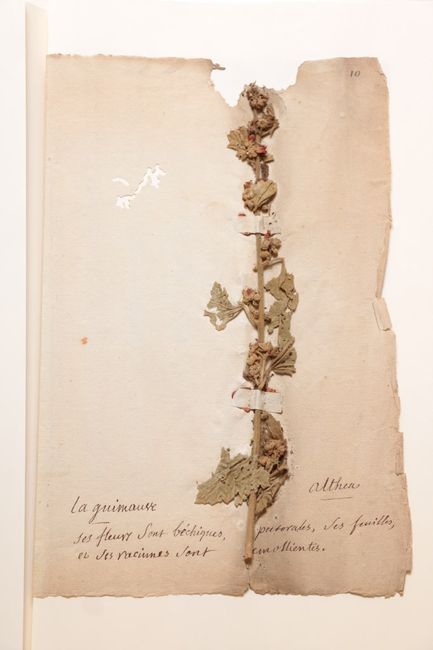 10
la guimauve
althea
ses fleurs sont béchiques, pectorales, ses feuilles,
et ses racinnes sont emollientes.